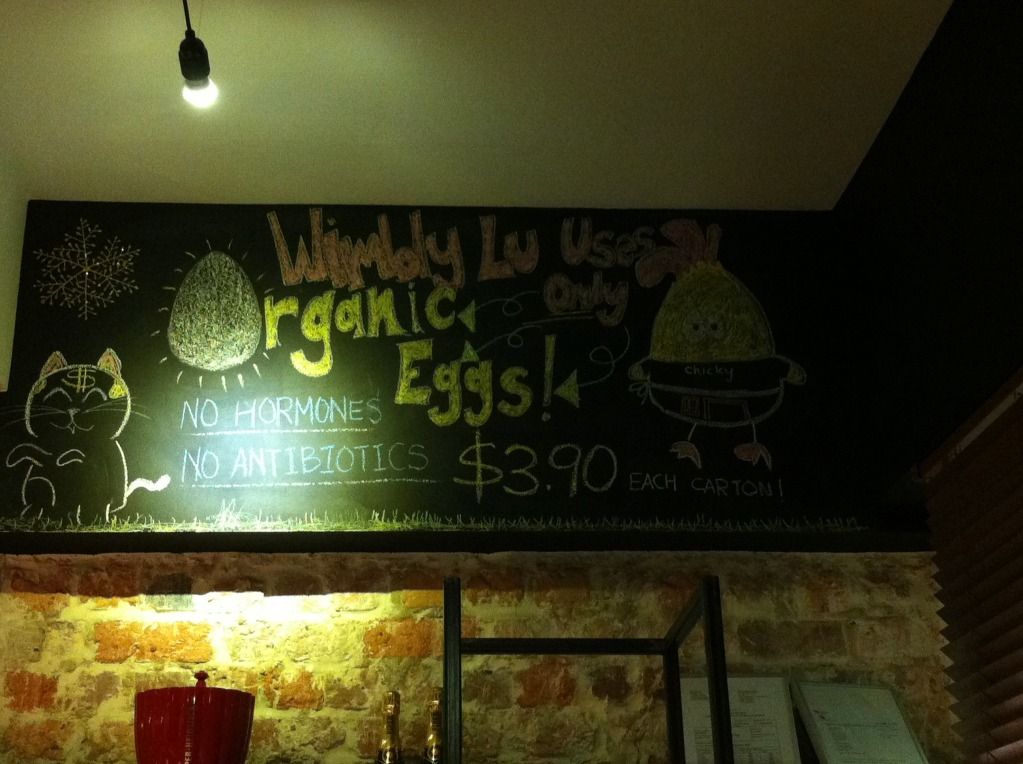 Wimbly Lu Uses
Only
Organic
Eggs!
chicky
$
NO HORMONES
NO ANTIBIOTICS
$3.90 EACH CARTON!